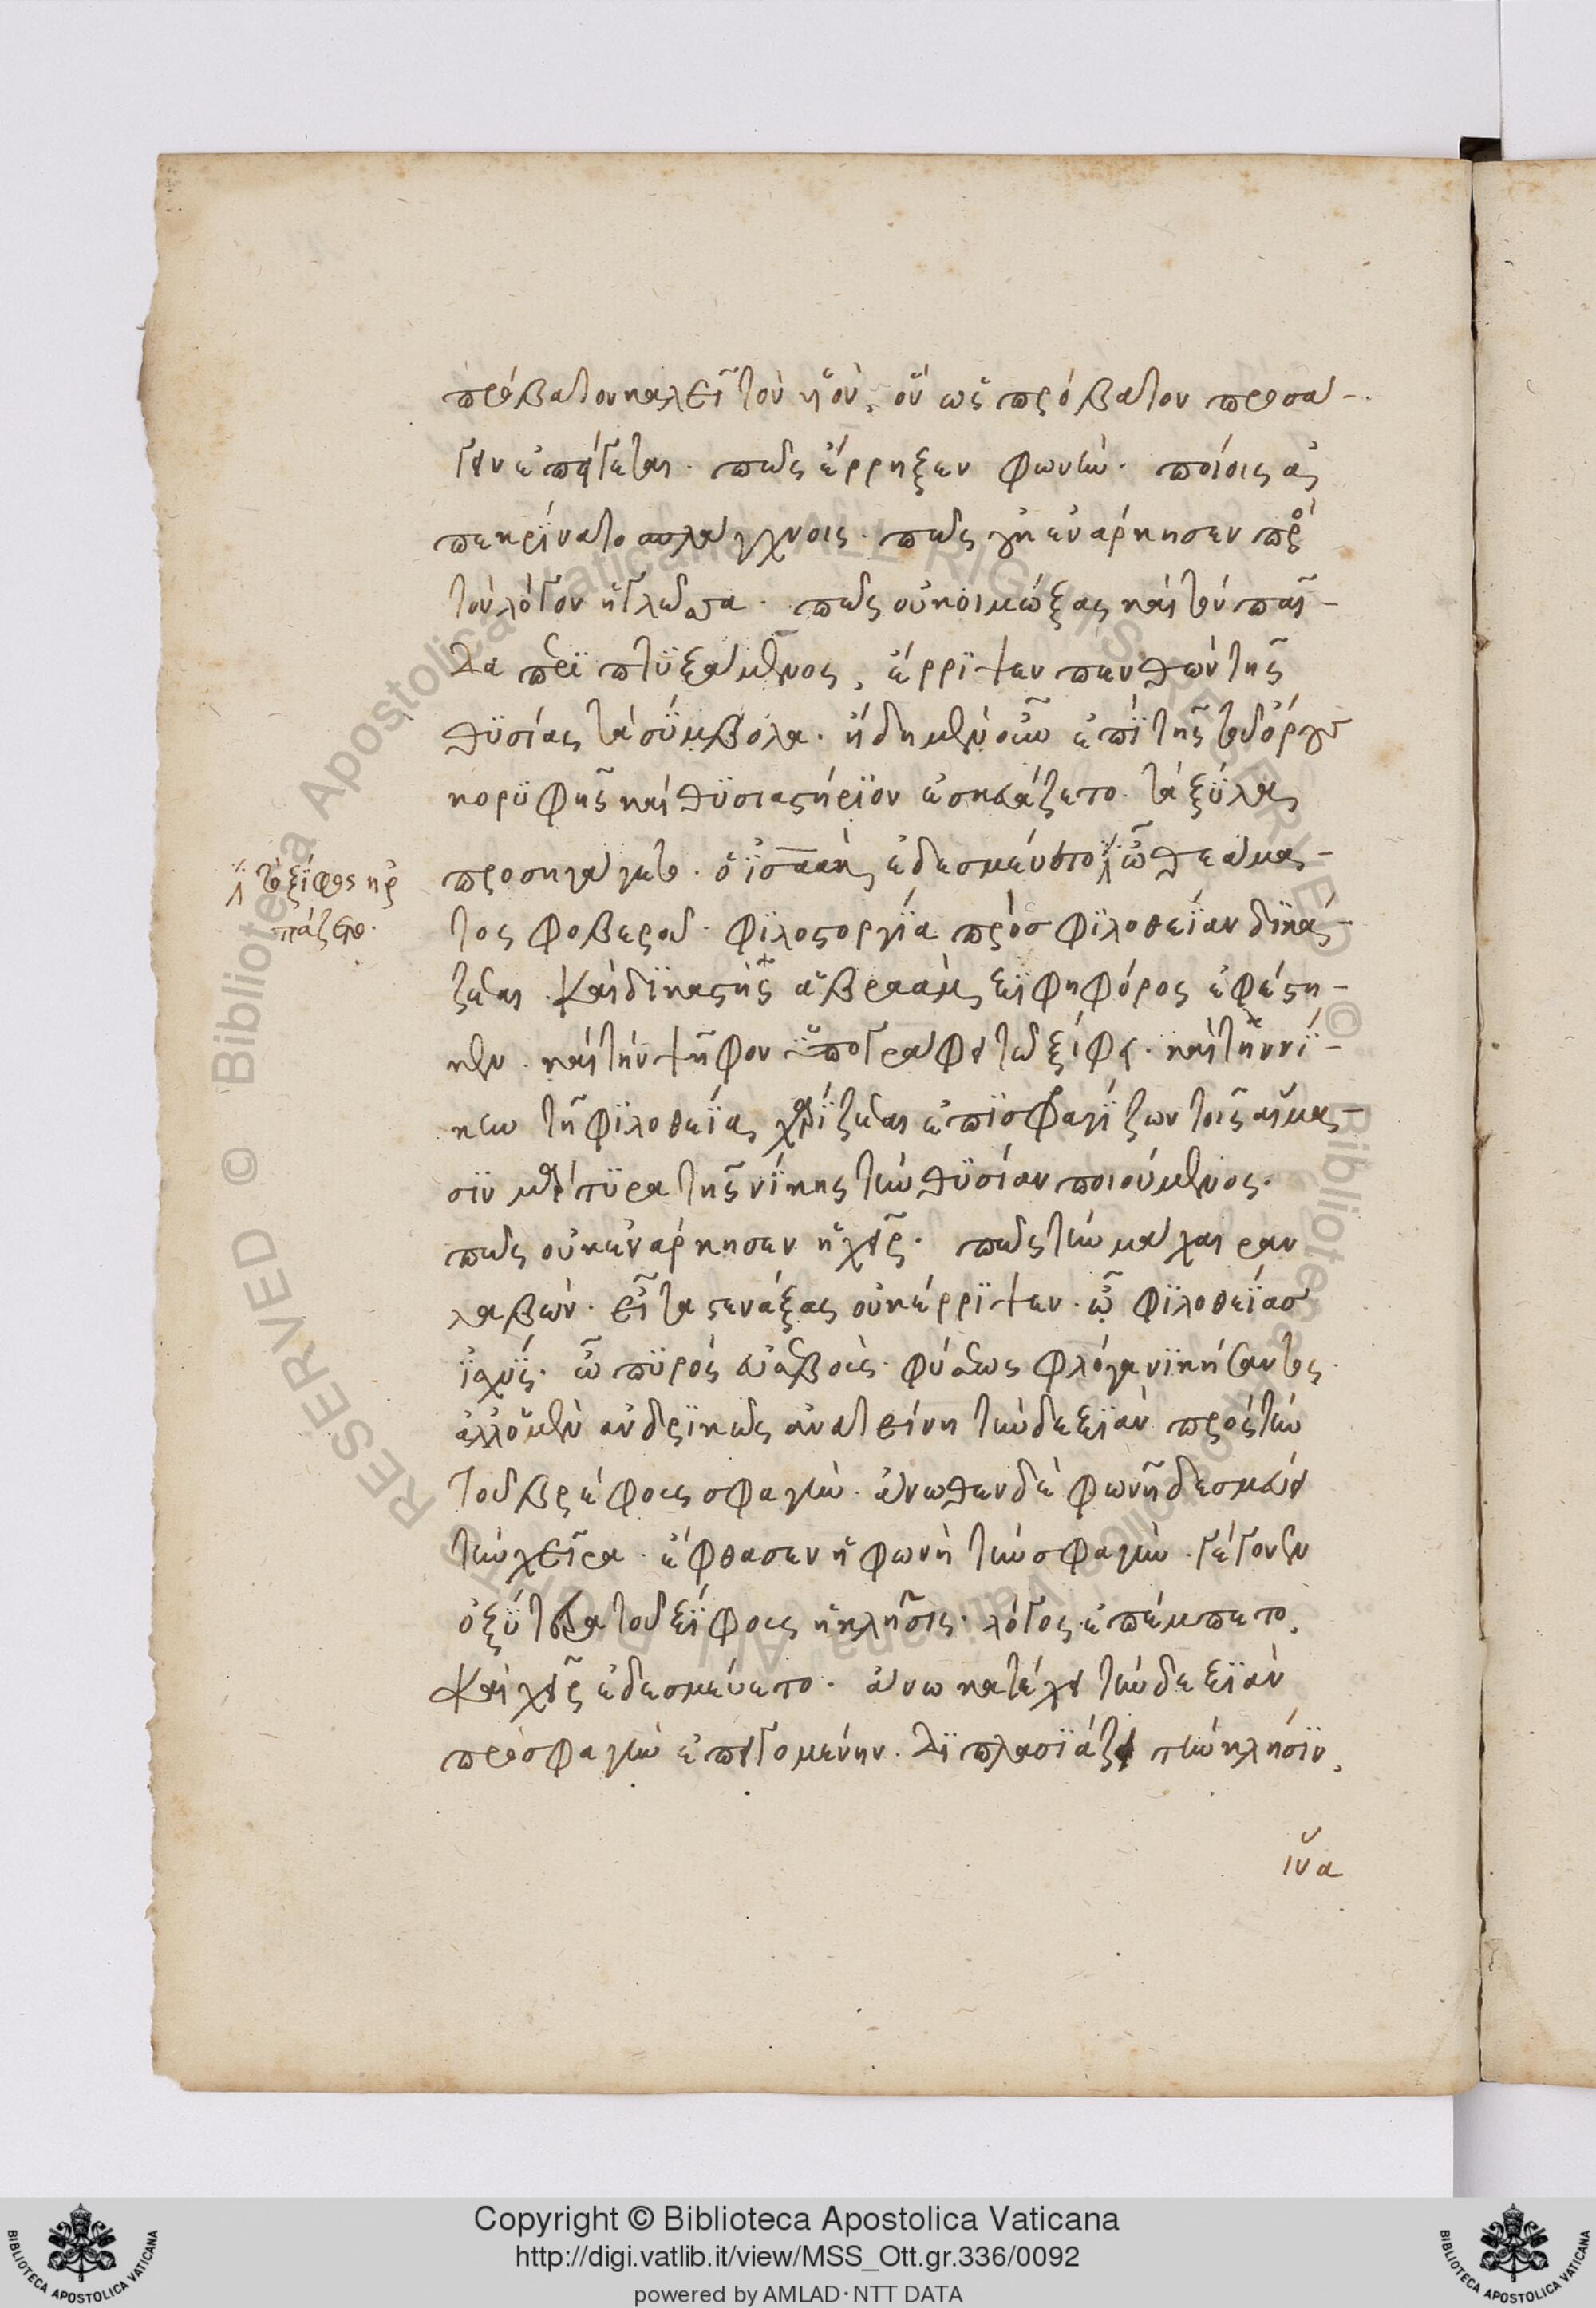 πρόβατον καλεῖ τὸν υἱὸν, ὃν ὡς πρόβατον προσα-
γειν ἐπείγεται. πῶς ἔρρηξεν φωνὴν. ποίοις ἀ
πεκρίνατο σπλάγχνοις. πῶς οὐκ ἐνάρκησεν πρὸς
τὸν λόγον ἡ γλῶσσα. πῶς οὐκ οἰμώξας καὶ τὸν παῖ-
δα περιπτυξάμενος, ἔρριψεν πενθῶν τῆς
θυσίας τὰ σύμβολα. ἤδη μὲν οὖν ἐπὶ τῆς τοῦ ὄρους
κορυφῆς καὶ θυσιαστήριον ἐσκευάζετο. τὰ ξύλα
προσηγάγετο. ὁ ἰσαὰκ ἐδεσμεύετο ὢ θεάμα-
τος φοβεροῦ. φιλοστοργία πρὸς φιλοθεΐαν δικά-
ζεται. καὶ δικαστὴς ἁβραὰμ ξιφηφόρος ἐφέστη-
κεν. καὶ τὴν ψῆφον ὑπογράφει τῷ ξίφει. καὶ τὴν νί-
κην τῇ φιλοθεΐα χαρίζεται ἐπισφραγίζων τοῖς αἵμα-
σιν μάρτυρα τῆς νίκης τὴν θυσίαν ποιούμενος.
πῶς οὐκ ἐνάρκησεν ἡ χεὶρ. πῶς τὴν μάχαιραν
λαβὼν. εἶτα στενάξας οὐκ ἔρριψεν. ὢ φιλοθεΐας
ἰσχύς. ὢ πυρὸς εὐσεβοῦς. φύσεως φλόγα νικήσαντος.
ἀλλ' ὁ μὲν ἀνδρικῶς ἀνατείνη τὴν δεξιὰν πρὸς τὴν
τοῦ βρέφους σφαγὴν. ἄνωθεν δὲ φωνῆ δεσμεύει
τὴν χεῖρα. ἔφθασεν ἡ φωνὴ τὴν σφαγὴν. γέγονεν
ὀξύτερα τοῦ ξίφους ἡ κλῆσις. λόγος ἐπέμπετο,
καὶ χεὶρ ἐδεσμεύετο. ἄνω κατέχει τὴν δεξιὰν
πρὸς φαγὴν ἐπειγομένην. διπλασιάζει τὴν κλῆσιν,
ἵνα
τὸ ξίφος ἡρ
πάζετο.
Copyright © Biblioteca Apostolica Vaticana
http://digi.vatlib.it/view/MSS_Ott.gr.336/0092
powered by AMLAD·NTT DATA